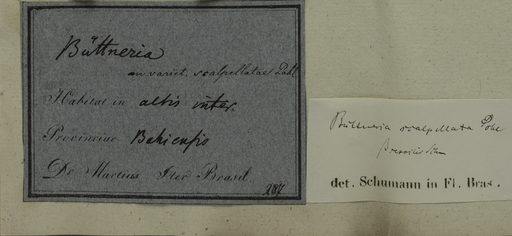 Büttneria
an variet. scalpellatae Pohl
Habitat in altis inter.
Provinciae Bahiensis
Dr. Martius Iter Brasil.
Büttneria scalpellata Pohl
det. Schumann in Fl. Bras.